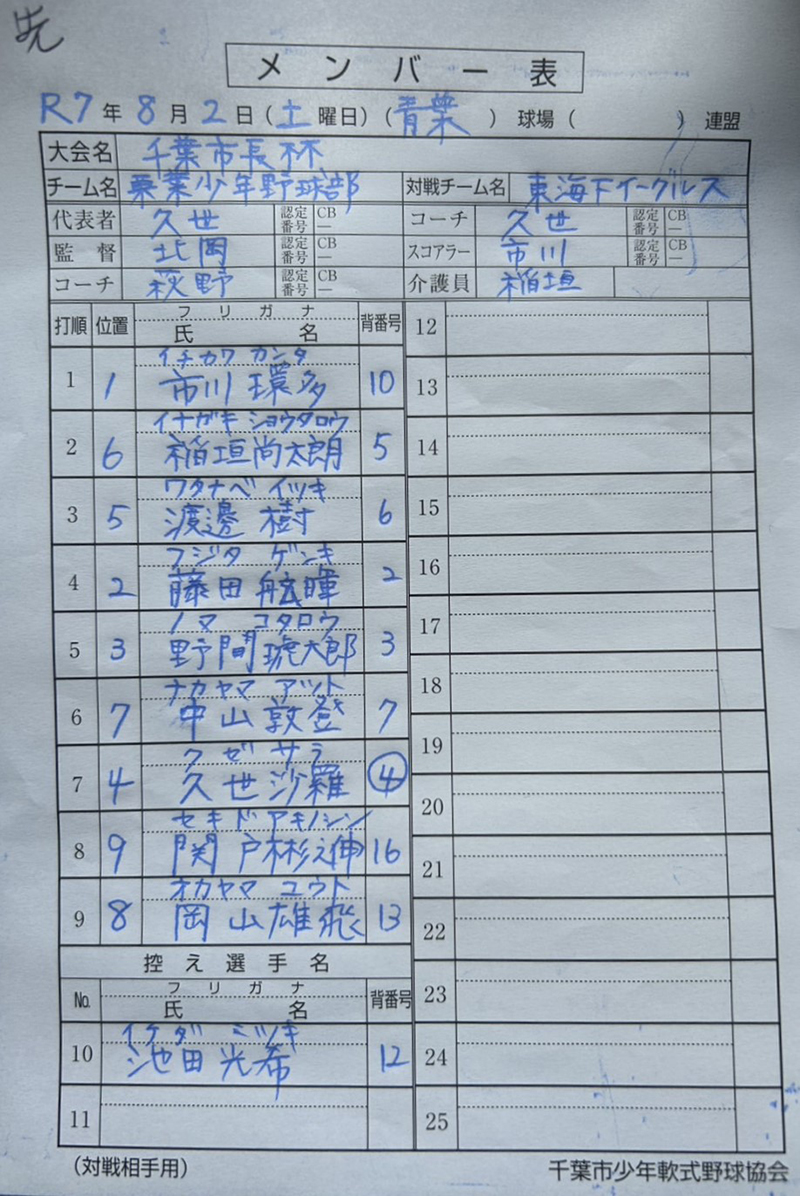 先
メンバー表
R7年8月2日(土曜日)(青葉)球場( )連盟
大会名 千葉市長杯
チーム名 栗葉少年野球部 対戦チーム名 東海下イーグルス
代表者 久世 認定番号 CB— コーチ 久世 認定番号 CB—
監督 北岡 認定番号 CB— スコアラー 市川 認定番号 CB—
コーチ 萩野 認定番号 CB— 介護員 稲垣
打順 位置 フリガナ 氏名 背番号
イチカワ カンタ
1 1 市川 環多 10
イナガキ ショウタロウ
2 6 稲垣尚太朗 5
ワタナベ イツキ
3 5 渡邊 樹 6
フジタ ゲンキ
4 2 藤田 舷暉 2
ノマ コタロウ
5 3 野間琥太郎 3
ナカヤマ アツト
6 7 中山敦登 7
クゼ サラ
7 4 久世沙羅 ④
セキド アキノシン
8 9 関戸彬之伸 16
オカヤマ ユウト
9 8 岡山雄飛 13
控え選手名
No. フリガナ 氏名 背番号
イケダ ミツキ
10 池田光希 12
11
12
13
14
15
16
17
18
19
20
21
22
23
24
25
(対戦相手用)
千葉市少年軟式野球協会